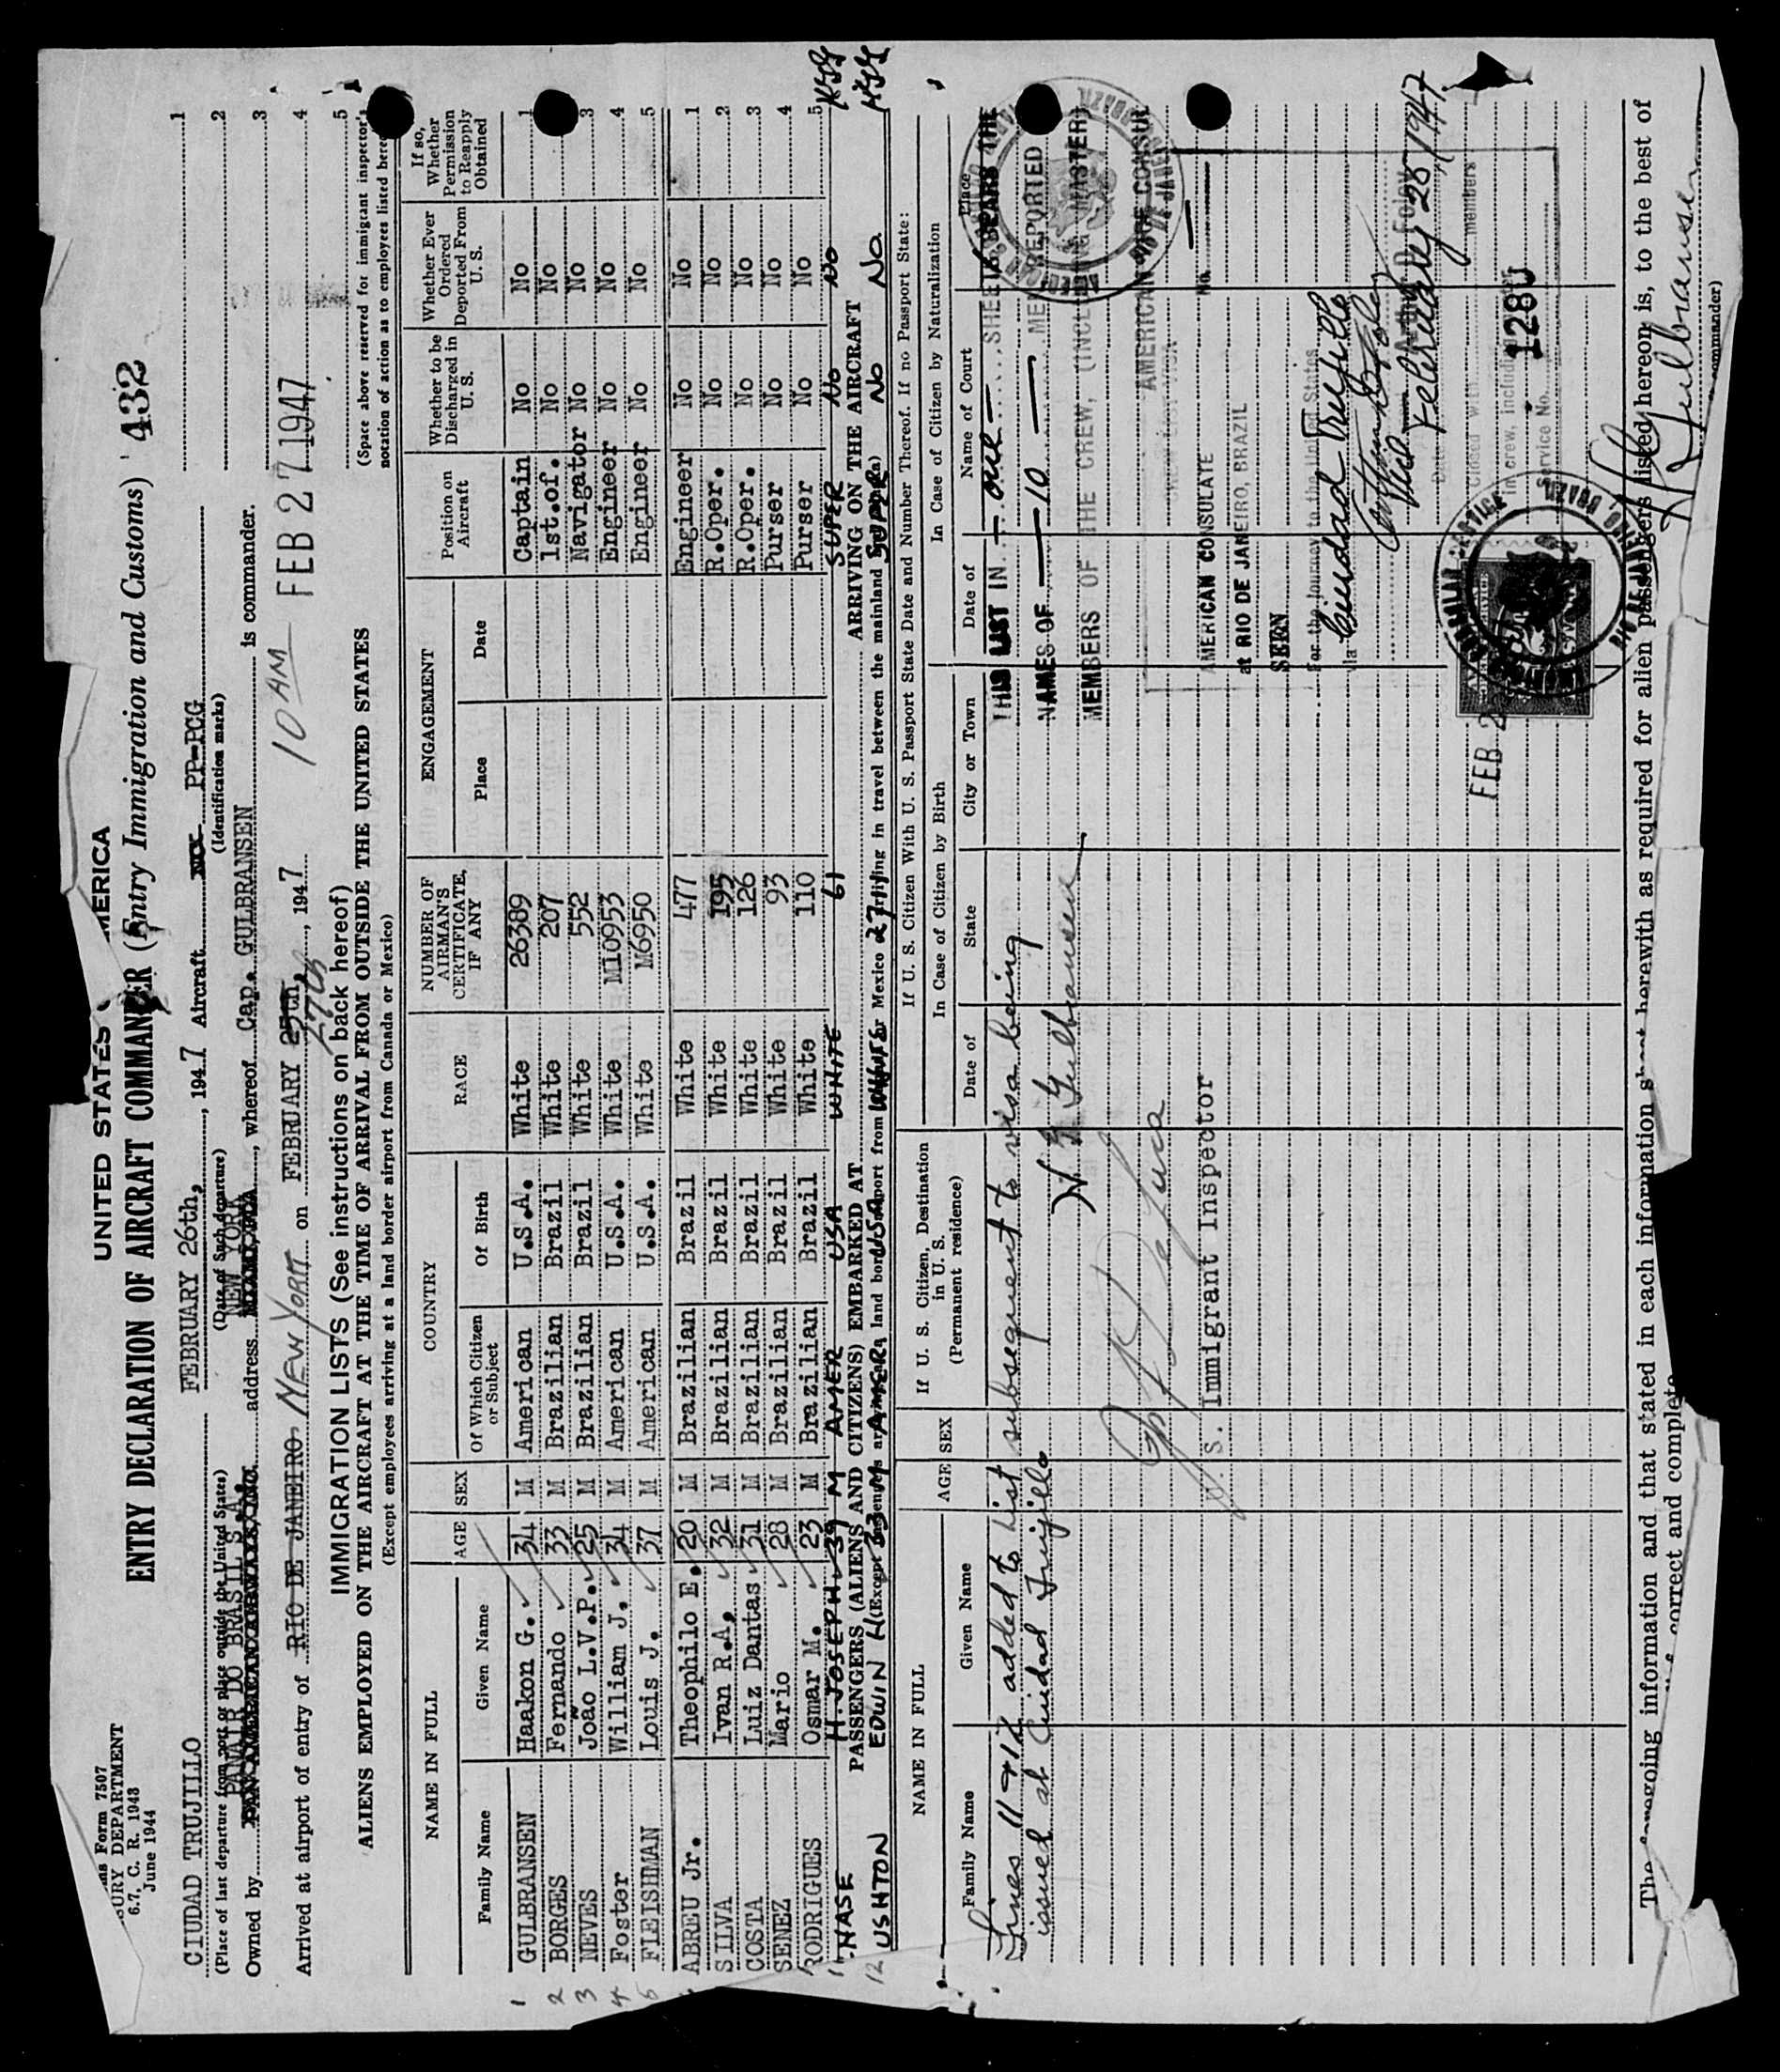 UNITED STATES
432
ENTRY DECLARATION OF AIRCRAFT COMMANDER (Entry Immigration and Customs)
Form 7507
DEPARTMENT
6.7, C. R. 1943
June 1944
CIUDAD TRUJILLO FEBRUARY 26th, , 1947 Aircraft PP-PCG
(Place of last departure from port or place outside the United States) (Date of such departure) (Identification marks)
PANAIR DO BRASIL S.A. NEW YORK
Owned by address , whereof Cap. GULBRANSEN is commander.
Arrived at airport of entry of RIO DE JANEIRO NEW YORK on FEBRUARY 25th, 27th , 1947 10 AM FEB 27 1947
1
2
3
4
5
IMMIGRATION LISTS (See instructions on back hereof)
(Space above reserved for immigrant inspector's
notation of action as to employees listed here
ALIENS EMPLOYED ON THE AIRCRAFT AT THE TIME OF ARRIVAL FROM OUTSIDE THE UNITED STATES
(Except employees arriving at a land border airport from Canada or Mexico)
NAME IN FULL AGE SEX COUNTRY RACE NUMBER OF AIRMAN'S CERTIFICATE, IF ANY ENGAGEMENT Position on Aircraft Whether to be Discharged in U. S. Whether Ever Ordered Deported From U. S. If so, Whether Permission to Reapply Obtained
Family Name Given Name Of Which Citizen or Subject Of Birth Place Date
1 GULBRANSEN Haakon G. 34 M American U.S.A. White 26389 Captain No No 1
2 BORGES Fernando 33 M Brazilian Brazil White 207 1st.of. No No
3 NEVES João L.V.P. 25 M Brazilian Brazil White 552 Navigator No No 3
4 Foster William J. 34 M American U.S.A. White M10953 Engineer No No 4
5 FLEISHMAN Louis J. 37 M American U.S.A. White M6950 Engineer No No 5
ABREU Jr. Theophilo E. 20 M Brazilian Brazil White 477 Engineer No No 1
SILVA Ivan R.A. 32 M Brazilian Brazil White 195 R.Oper. No No 2
COSTA Luiz Dantas 31 M Brazilian Brazil White 126 R.Oper. No No 3
SENEZ Mario 28 M Brazilian Brazil White 93 Purser No No 4
RODRIGUES Osmar M. 23 M Brazilian Brazil White 110 Purser No No 5
11 HASE H. JOSEPH 39 M AMER USA WHITE 61 SUPER No No
PASSENGERS, (ALIENS AND CITIZENS) EMBARKED AT ARRIVING ON THE AIRCRAFT
12 USHTON EDWIN H 33 M AMER USA WHITE 27 SUPER No No
If U. S. Citizen With U. S. Passport State Date and Number Thereof. If no Passport State:
NAME IN FULL AGE SEX If U. S. Citizen, Destination in U. S. (Permanent residence) In Case of Citizen by Birth In Case of Citizen by Naturalization
Family Name Given Name Date of State City or Town Date of Name of Court Place
Lines 11 & 12 added to list subsequent to visa being
issued at Ciudad Trujillo
H G Gulbransen
U.S. Immigrant Inspector
THIS LIST IN one SHEETS BEARS THE
NAMES OF 10 REPORTED
MEMBERS OF THE CREW, (INCLUDING MASTER)
AMERICAN VICE CONSUL
AMERICAN CONSULATE No.
at RIO DE JANEIRO, BRAZIL
SEEN
For the journey to the United States
via Ciudad Trujillo
Arthur D. Foley
Date February 25, 1947.
Closed with members
in crew, including
Service No. 1280
FEB 2
AMERICAN CONSULAR SERVICE
RIO DE JANEIRO, BRAZIL
The foregoing information and that stated in each information sheet herewith as required for alien passengers listed hereon is, to the best of
correct and complete
H G Gulbransen
commander)